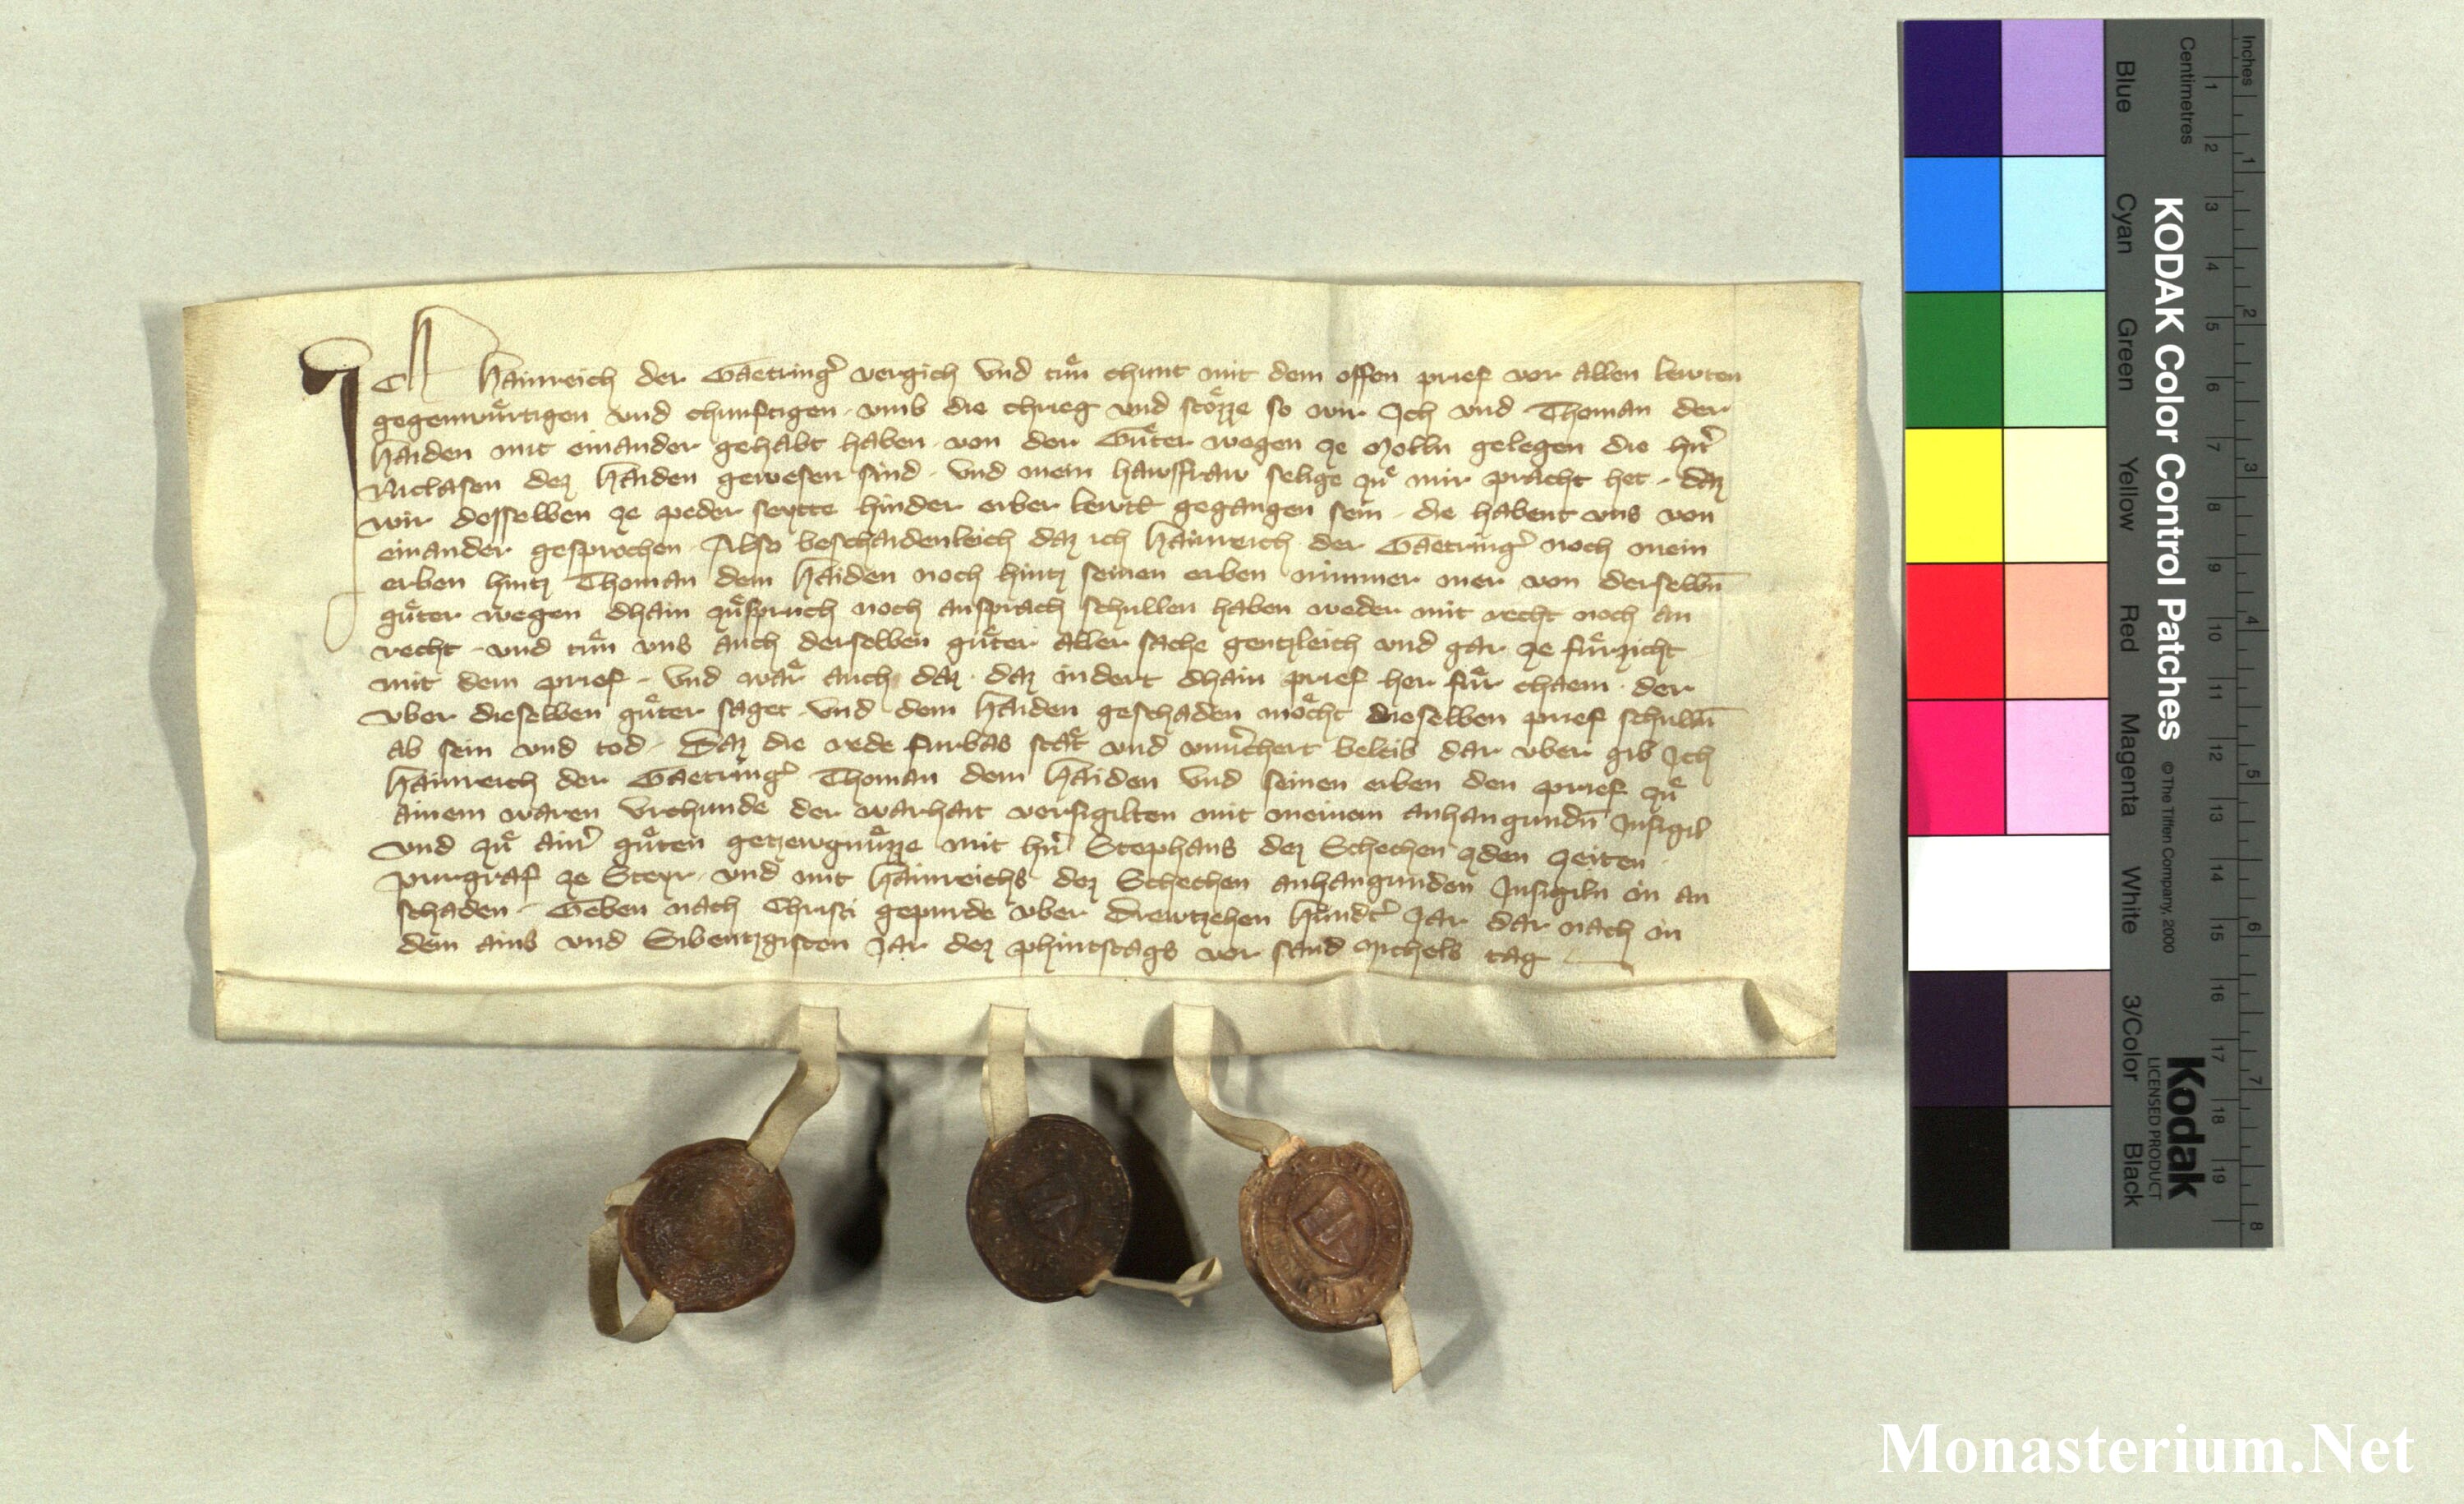 Ich Hainreich der Gaetringer̉ vergich vnd tuͤn chunt mit dem offen prief vor allen lewten
gegenwuͤrtigen vnd chunftigen vmb die chrieg vnd stoͤzze so wir Ich vnd Thoman der
Haiden mit einander gehabt haben von der Guͤter wegen ze Molln gelegen die hr̉n
Niclasen dez Haiden gewesen sind vnd mein hawsfraw selige zuͤ mir pracht het daz
wir desselben ze peder seytte hinder erber lewtt gegangen sein die habent vns von
einander gesprochen Also beschaidenleich daz ich Hainreich der Gaetringer̉ noch mein
erben hintz Thoman dem Haiden noch hintz seinen erben nimmer mer von derselbn̄
guͤter wegen dhain zuͤspruch noch ansprach schullen haben weder mit recht noch an
recht vnd tuͤn vns auch derselben guͤter aller sache gentzleich vnd gar ze fuͤrzicht
mit dem prief vnd waͤr auch daz daz indert dhain prief her fuͤr chaem der
vber dieselben guͤter saget vnd dem Haiden geschaden moͤcht dieselben prief schulln̄
ab sein vnd tod Daz die rede furbas staͤt vnd vnuer̉chert beleib dar vber gib Ich
Hainreich der Gaetringer̉ Thoman dem Haiden vnd seinen erben den prief zuͤ
ainem waren vrchunde der warhait versigilten mit meinem anhangundn̄ Insigil
vnd zuͤ ainer̉ guͤten getzewgnuͤzze mit hr̉n Stephans dez Schechen zden zeiten
purgraf ze Steyr vnd mit Hainreichs dez Schechen anhangunden Insigiln in an
schaden Geben nach Christi gepurde vber drewtzehen hundert̉ Jar dar nach in
dem ains vnd Sibentzgisten Jar dez phintztags vor sand Michels tag
Inches
Centimetres
Blue Cyan Green Yellow Red Magenta White 3/Color Black
KODAK Color Control Patches
© The Tiffen Company, 2000
Kodak
LICENSED PRODUCT
1 2 3 4 5 6 7 8 9 10 11 12 13 14 15 16 17 18 19
1 2 3 4 5 6 7 8
Monasterium.Net